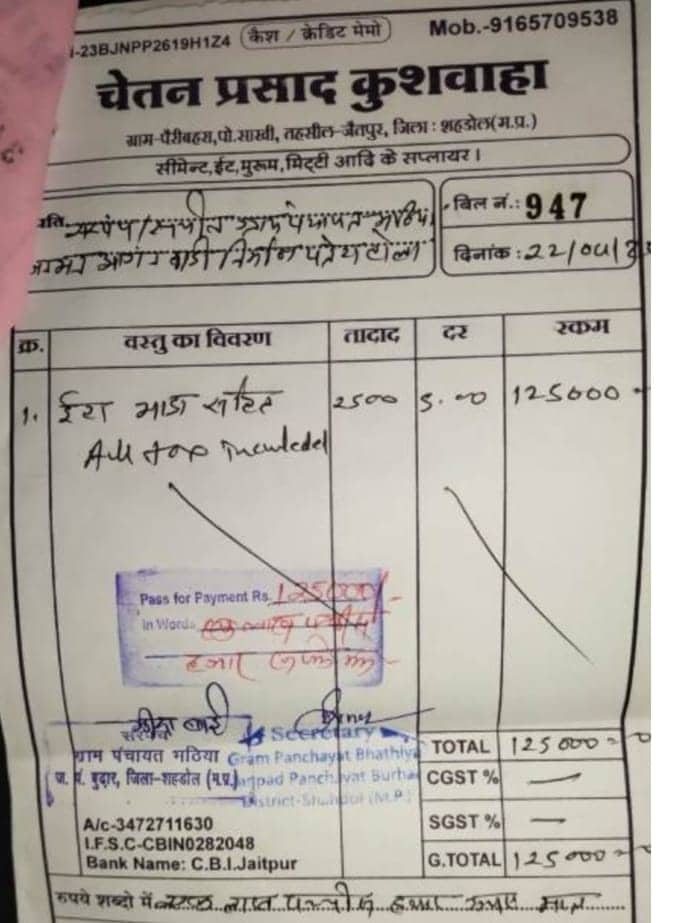 -23BJNPP2619H1Z4 कैश / क्रेडिट मेमो Mob.-9165709538
चेतन प्रसाद कुशवाहा
ग्राम-पैरीबहरा,पो.साखी, तहसील-जैतपुर, जिला : शहडोल(म.प्र.)
सीमेन्ट,ईट,मुरूम,मिट्टी आदि के सप्लायर।
बिल नं.: 947
दिनांक : 22/04/
क्र. वस्तु का विवरण तादाद दर रकम
1. ईटा भाडा सहित 2500 5.00 125000
All
Pass for Payment Rs. 125000/-
In Words
हजार
सरपंच Secretary
ग्राम पंचायत भठिया Gram Panchayat Bhathiya
ज. पं. बुढार, जिला-शहडोल (म.प्र.) Janpad Panchayat Burhar
District-Shahdol (M.P.)
TOTAL 125000
CGST % —
SGST % —
G.TOTAL 125000
A/c-3472711630
I.F.S.C-CBIN0282048
Bank Name: C.B.I.Jaitpur
रुपये शब्दो में